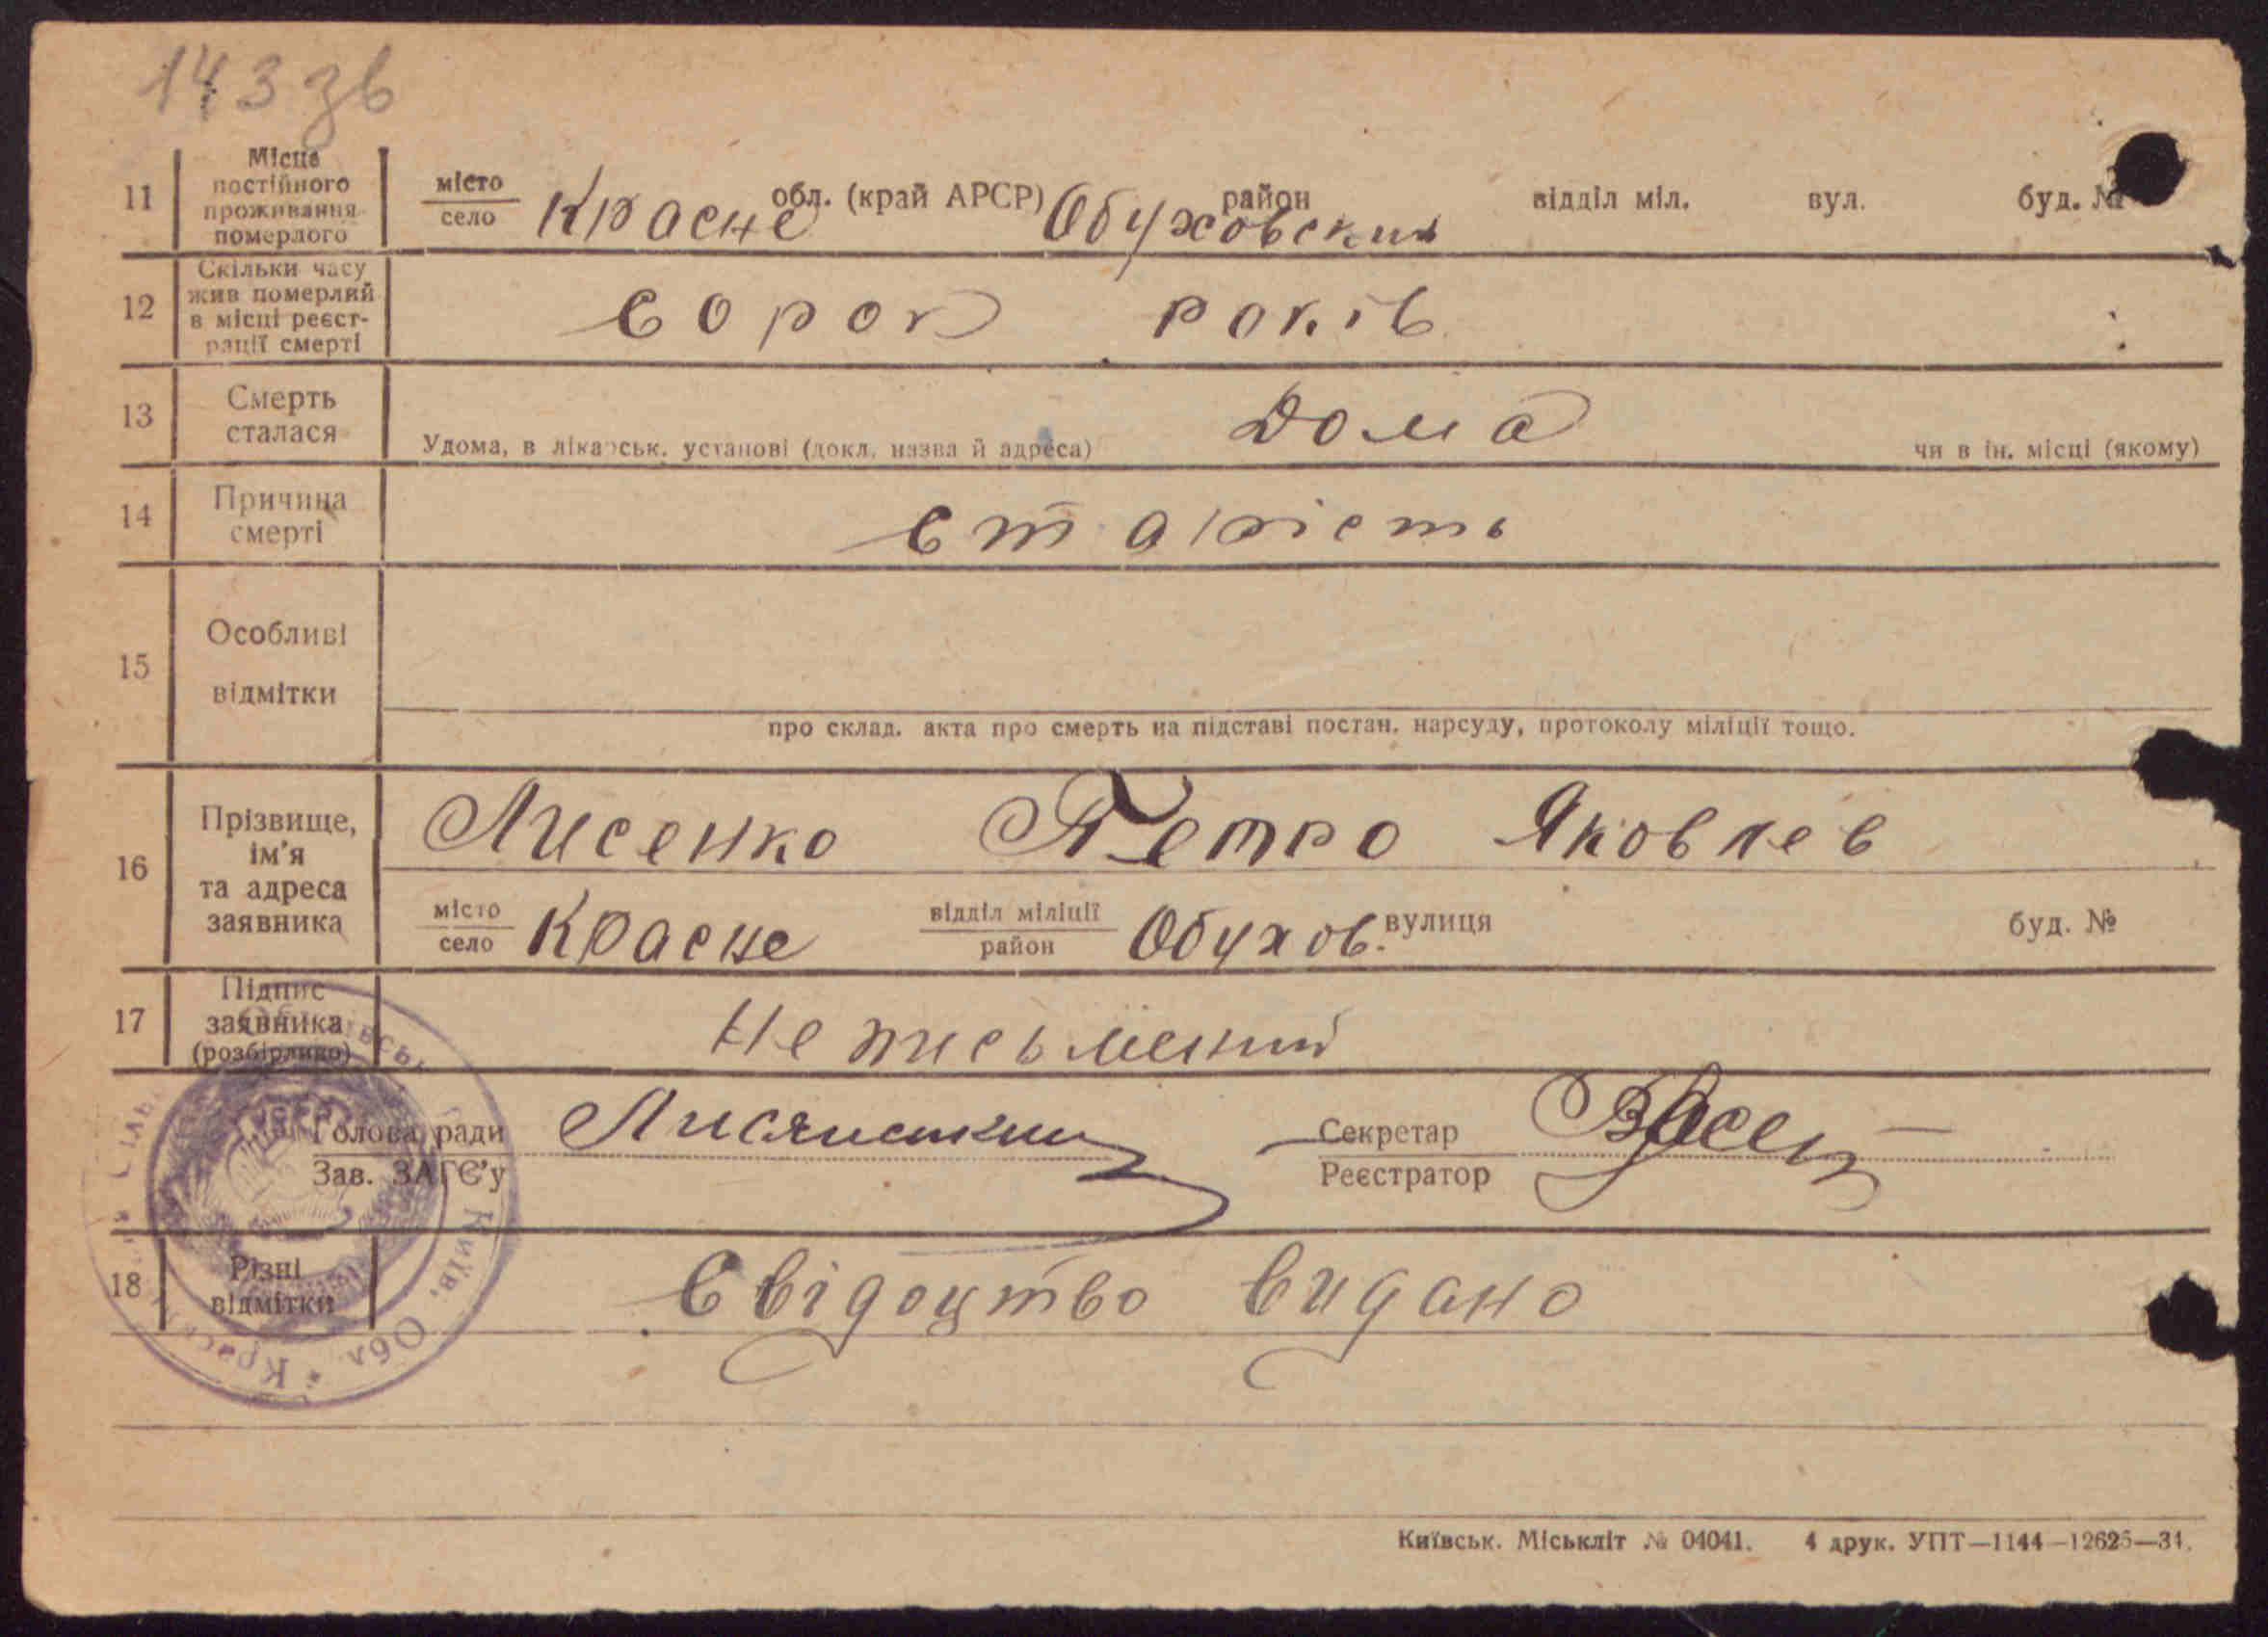 143 зв
11 Місце постійного проживання померлого місто село Красне обл. (край АРСР) Обуховский район відділ міл. вул. буд. №
12 Скільки часу жив померлий в місці реєстрації смерті сорок років
13 Смерть сталася Удома, в лікарськ. установі (докл. назва й адреса) Дома чи в ін. місці (якому)
14 Причина смерті старість
15 Особливі відмітки
про склад. акта про смерть на підставі постан. нарсуду, протоколу міліції тощо.
16 Прізвище, ім'я та адреса заявника Лисенко Петро Яковлев
місто село Красне відділ міліції район Обухов. вулиця буд. №
17 Підпис заявника (розбірливо) Не письмений
Голова ради
Зав. ЗАГС'у
Секретар
Реєстратор
18 Різні відмітки Свідоцтво видано
Київ. Обл. * Красн
Київськ. Міськліт № 04041. 4 друк. УПТ—1144—12625—34.